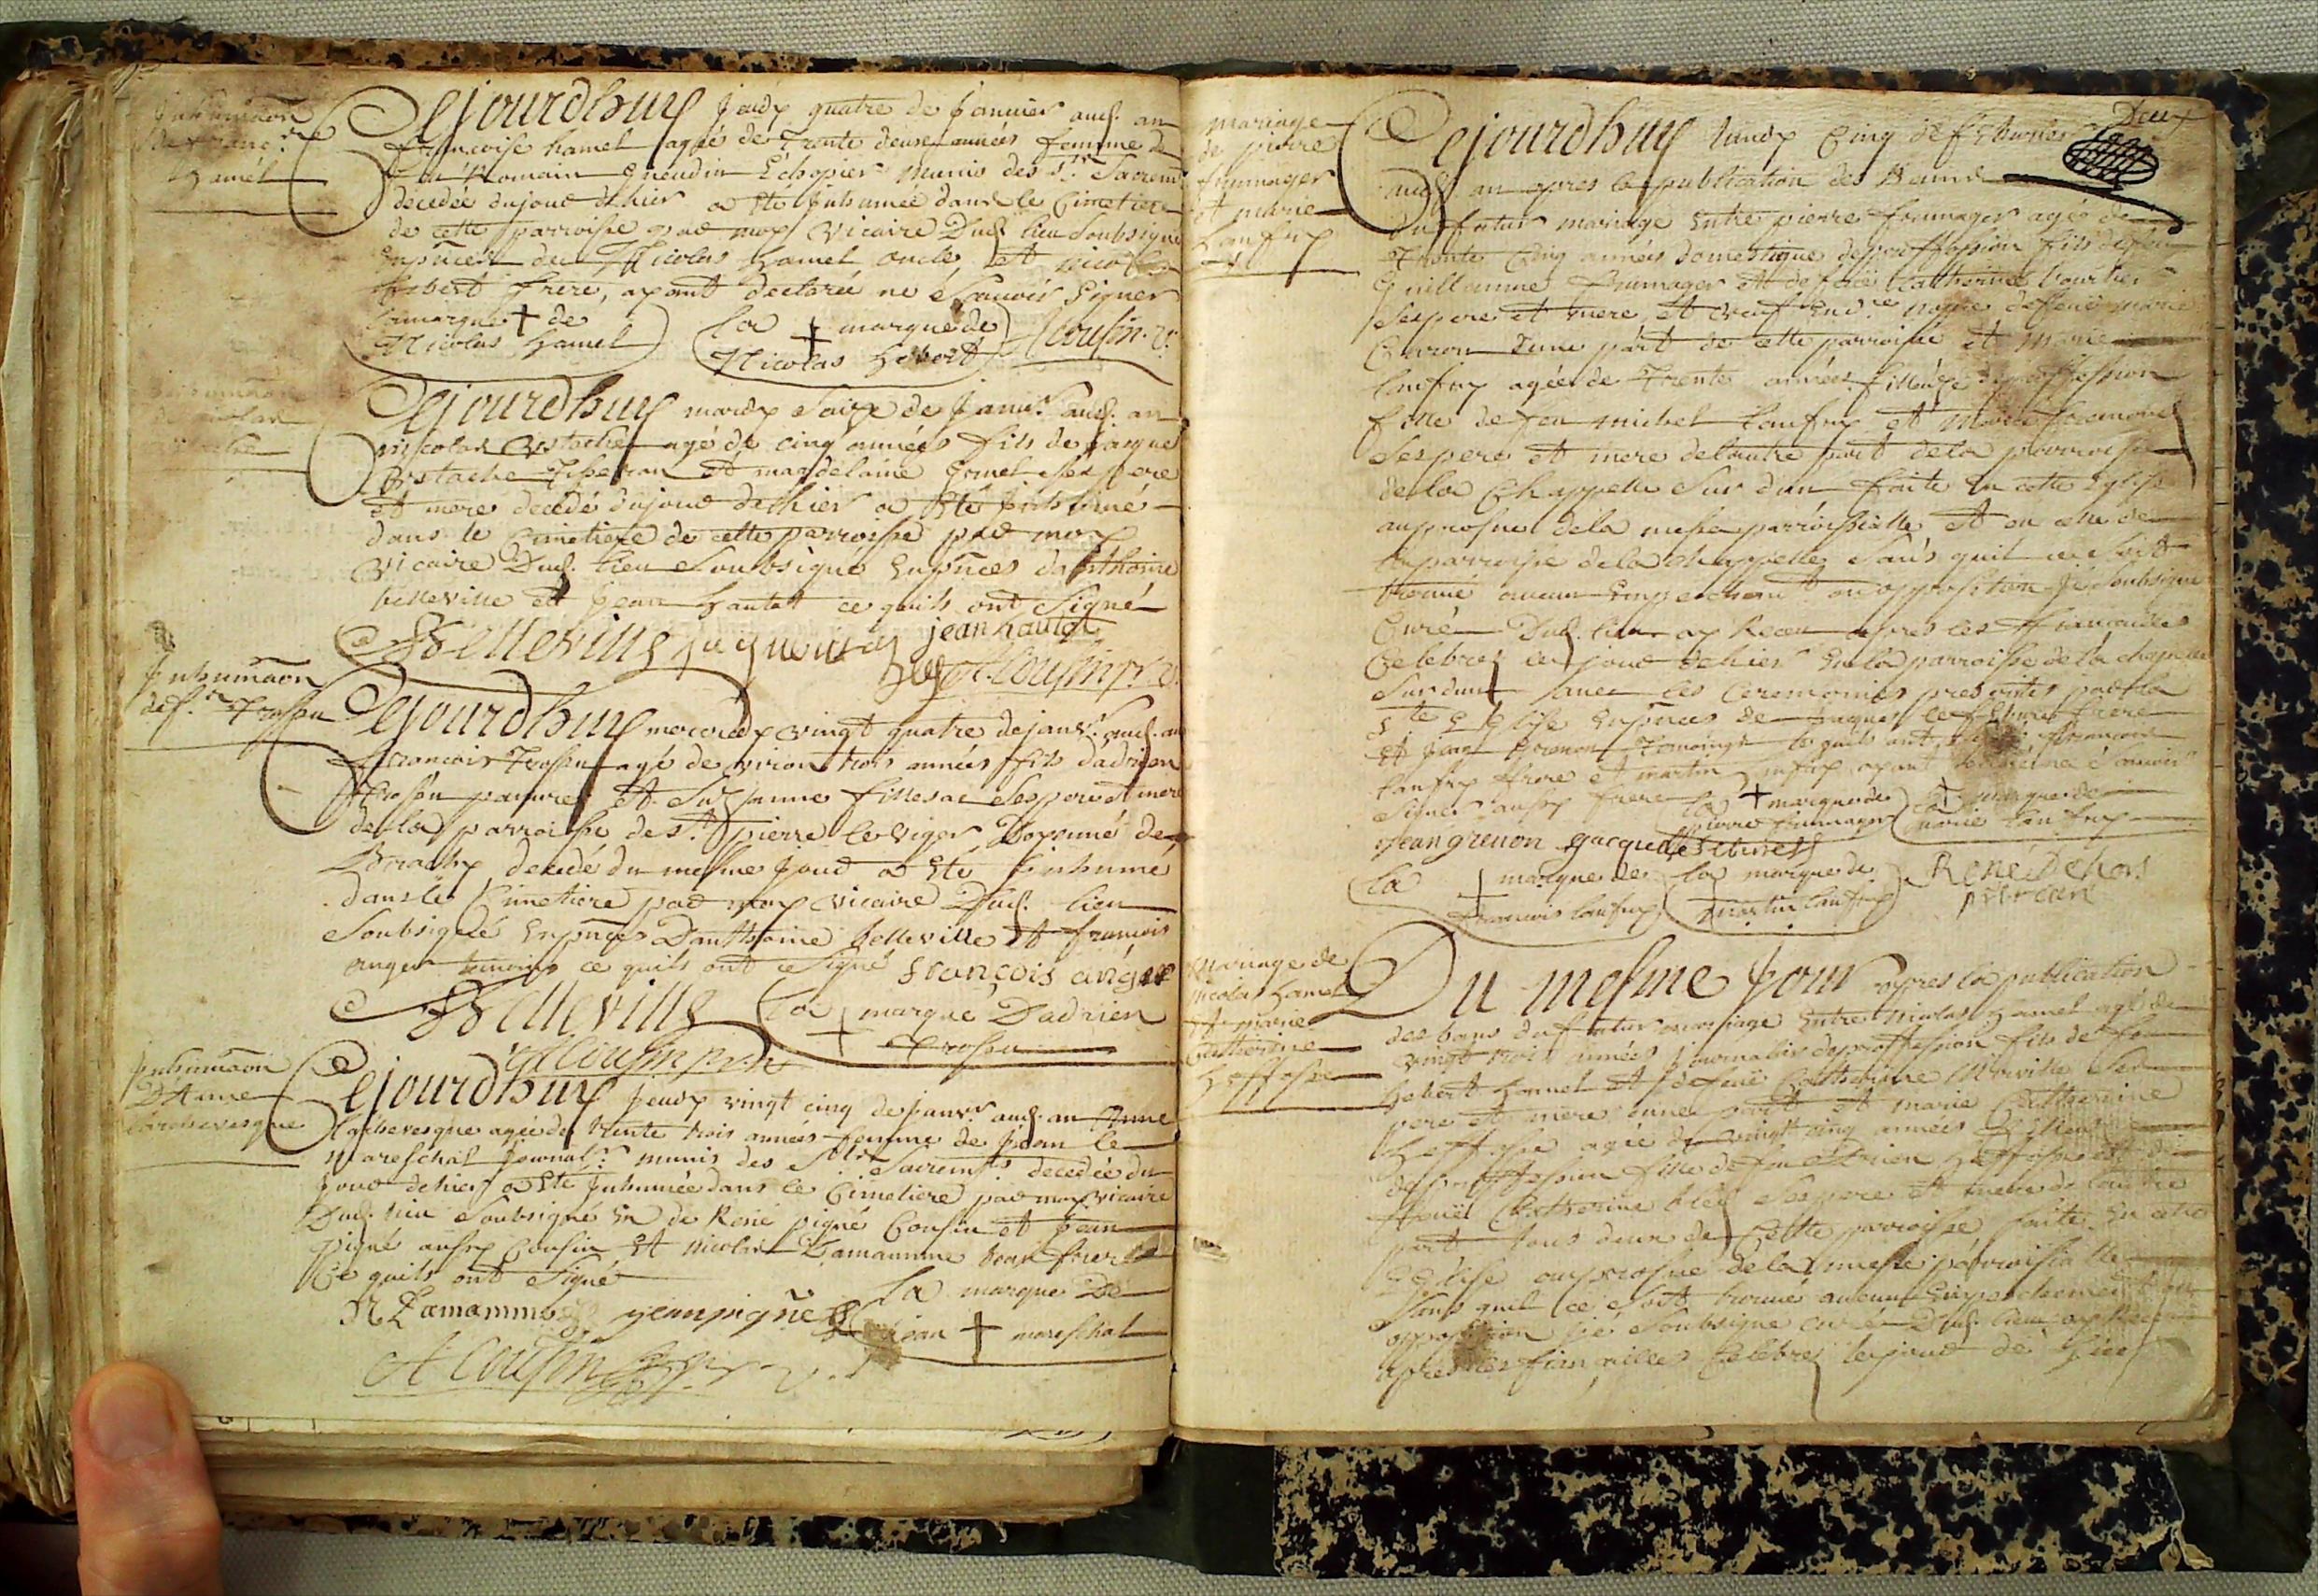 Inhumaon
de Franc.se
hamel
Cejourdhuy Jeudy quatre de Janvier aud. an
francoise hamel agée de trente deux années femme de
Romain Gueudin munis des Sts Sacrem
decedée dujour dhier a êté Inhumée dans le Cimetiere
de cette parroisse par moy vicaire Dud. lieu Soubsigné
Enpnces de Nicolas hamel oncle et nicolas
hebert frere, ayant declaré ne Scavoir Signer
la marque + de
Nicolas hamel
La + marque de
Nicolas hebert
A Cousin. v.
Inhumaon
de nicolas
Cejourdhuy mardy Saize de Janv. aud. an
nicolas Ustache agé de cinq années fils de Jaque
Ustache et magdelaine hamel Ses pere
et mere decedé dujour dehier a êté Inhumé
dans le Cimetiere de cette parroisse par moy
vicaire Dud. lieu Soubsigné Enpnces danthoine
belleville et Jean hautot ce quils ont Signé
ABelleville
jean hautot
A. Cousin pr. v.
Inhumaon
de f. Trosseu
Cejourdhuy mercredy vingt quatre de janv. aud. an
francois Trosseu agé de viron trois années fils dadrien
Trosseu pauvre et Suzanne Ses pere et mere
de la parroisse de St pierre le viger Doyenné de
Brachy decedé du mesme jour a êté Inhumé
dans le Cimetiere par moy vicaire Dud. lieu
Soubsigné Enpnces Danthoine belleville et francois
anger temoins ce quils ont Signé François anger
ABelleville
La + marque Dadrien
Trosseu
A Cousin pr. v.
Inhumaon
D'Anne
Larchevesque
Cejourdhuy Jeudy vingt cinq de Janvr aud. an Anne
larchevesque agée de trente trois années femme de Jean le
mareschal Journalr munis des Sts Sacremts decedée du
jour dehier a êté Inhumée dans le Cimetiere par moy vicaire
Dud. lieu Soubsigné En de René pigné Cousin et Jean
pigné aussy Cousin et nicolas Lamamme beau frere
Ce quils ont Signé
N Lamamme jean pigne
La marque De
Jean + mareschal
A Cousin pr. v.
Deux
mariage
de pierre
frumager
et marie
Lanfry
Cejourdhuy lundy Cinq de febvrier
aud. an apres la publication des Bans
du futur mariage Entre pierre frumager agée de
Trente Cinq années domestique de proffession fils de feu
Guillaume frumager et de feüe Catherine
Ses pere et mere, et veuf de feüe marie
Caron d'une part de cette parroisse et marie
Lanfry agée de Trente années de proffession
fille de feu michel Lanfry et marie
Ses pere et mere delautre part de la parroisse
de la Chappelle Sur dun faite en cette Eglise
au prosne de la messe parroissialle et en celle de
la parroisse de la Chappelle Sans quil ce Soit
trouvé aucun Empeschemt ou opposition Je Soubsigné
Curé Dud. lieu ay Receu apres les fiancailles
Celebrez le jour dehier En la parroisse de la chapelle
Surdun avec les Ceremonies prescrites par la
Ste Eglise Enpnces de Jaques le febvre frere
et Jean Grenon Temoings ce quils ont Signé francois
Lanfry frere et martin Lanfry ayant declaré ne Scavoir
Signer aussy frere La + marque de
pierre frumager
La + marque de
marie Lanfry
Jean grenon Jacque lefebvre
La + marque de
francois Lanfry
La marque de
martin Lanfry
René Dehors
ptre curé
Mariage de
nicolas hamel
et marie
Catherine
heffosse
Du mesme Jour apres la publication
des bans du futur mariage Entre nicolas hamel agé de
vingt trois années Journalier de proffession fils de feu
hebert hamel et de feüe Catherine Ses
pere et mere dunne part et marie Catherine
heffosse agée de vingt cinq années
de proffession fille de feu Adrien heffosse et de
feüe Catherine bleé Ses pere et mere de lautre
part tous deux de Cette parroisse faite En cette
Eglise au prosne de la messe parroissialle
Sans quil ce Soit trouvé aucun Empeschement ou
opposition Je Soubsigné curé Dud. lieu ay Receu
apres les fiancailles Celebrez le jour de hier